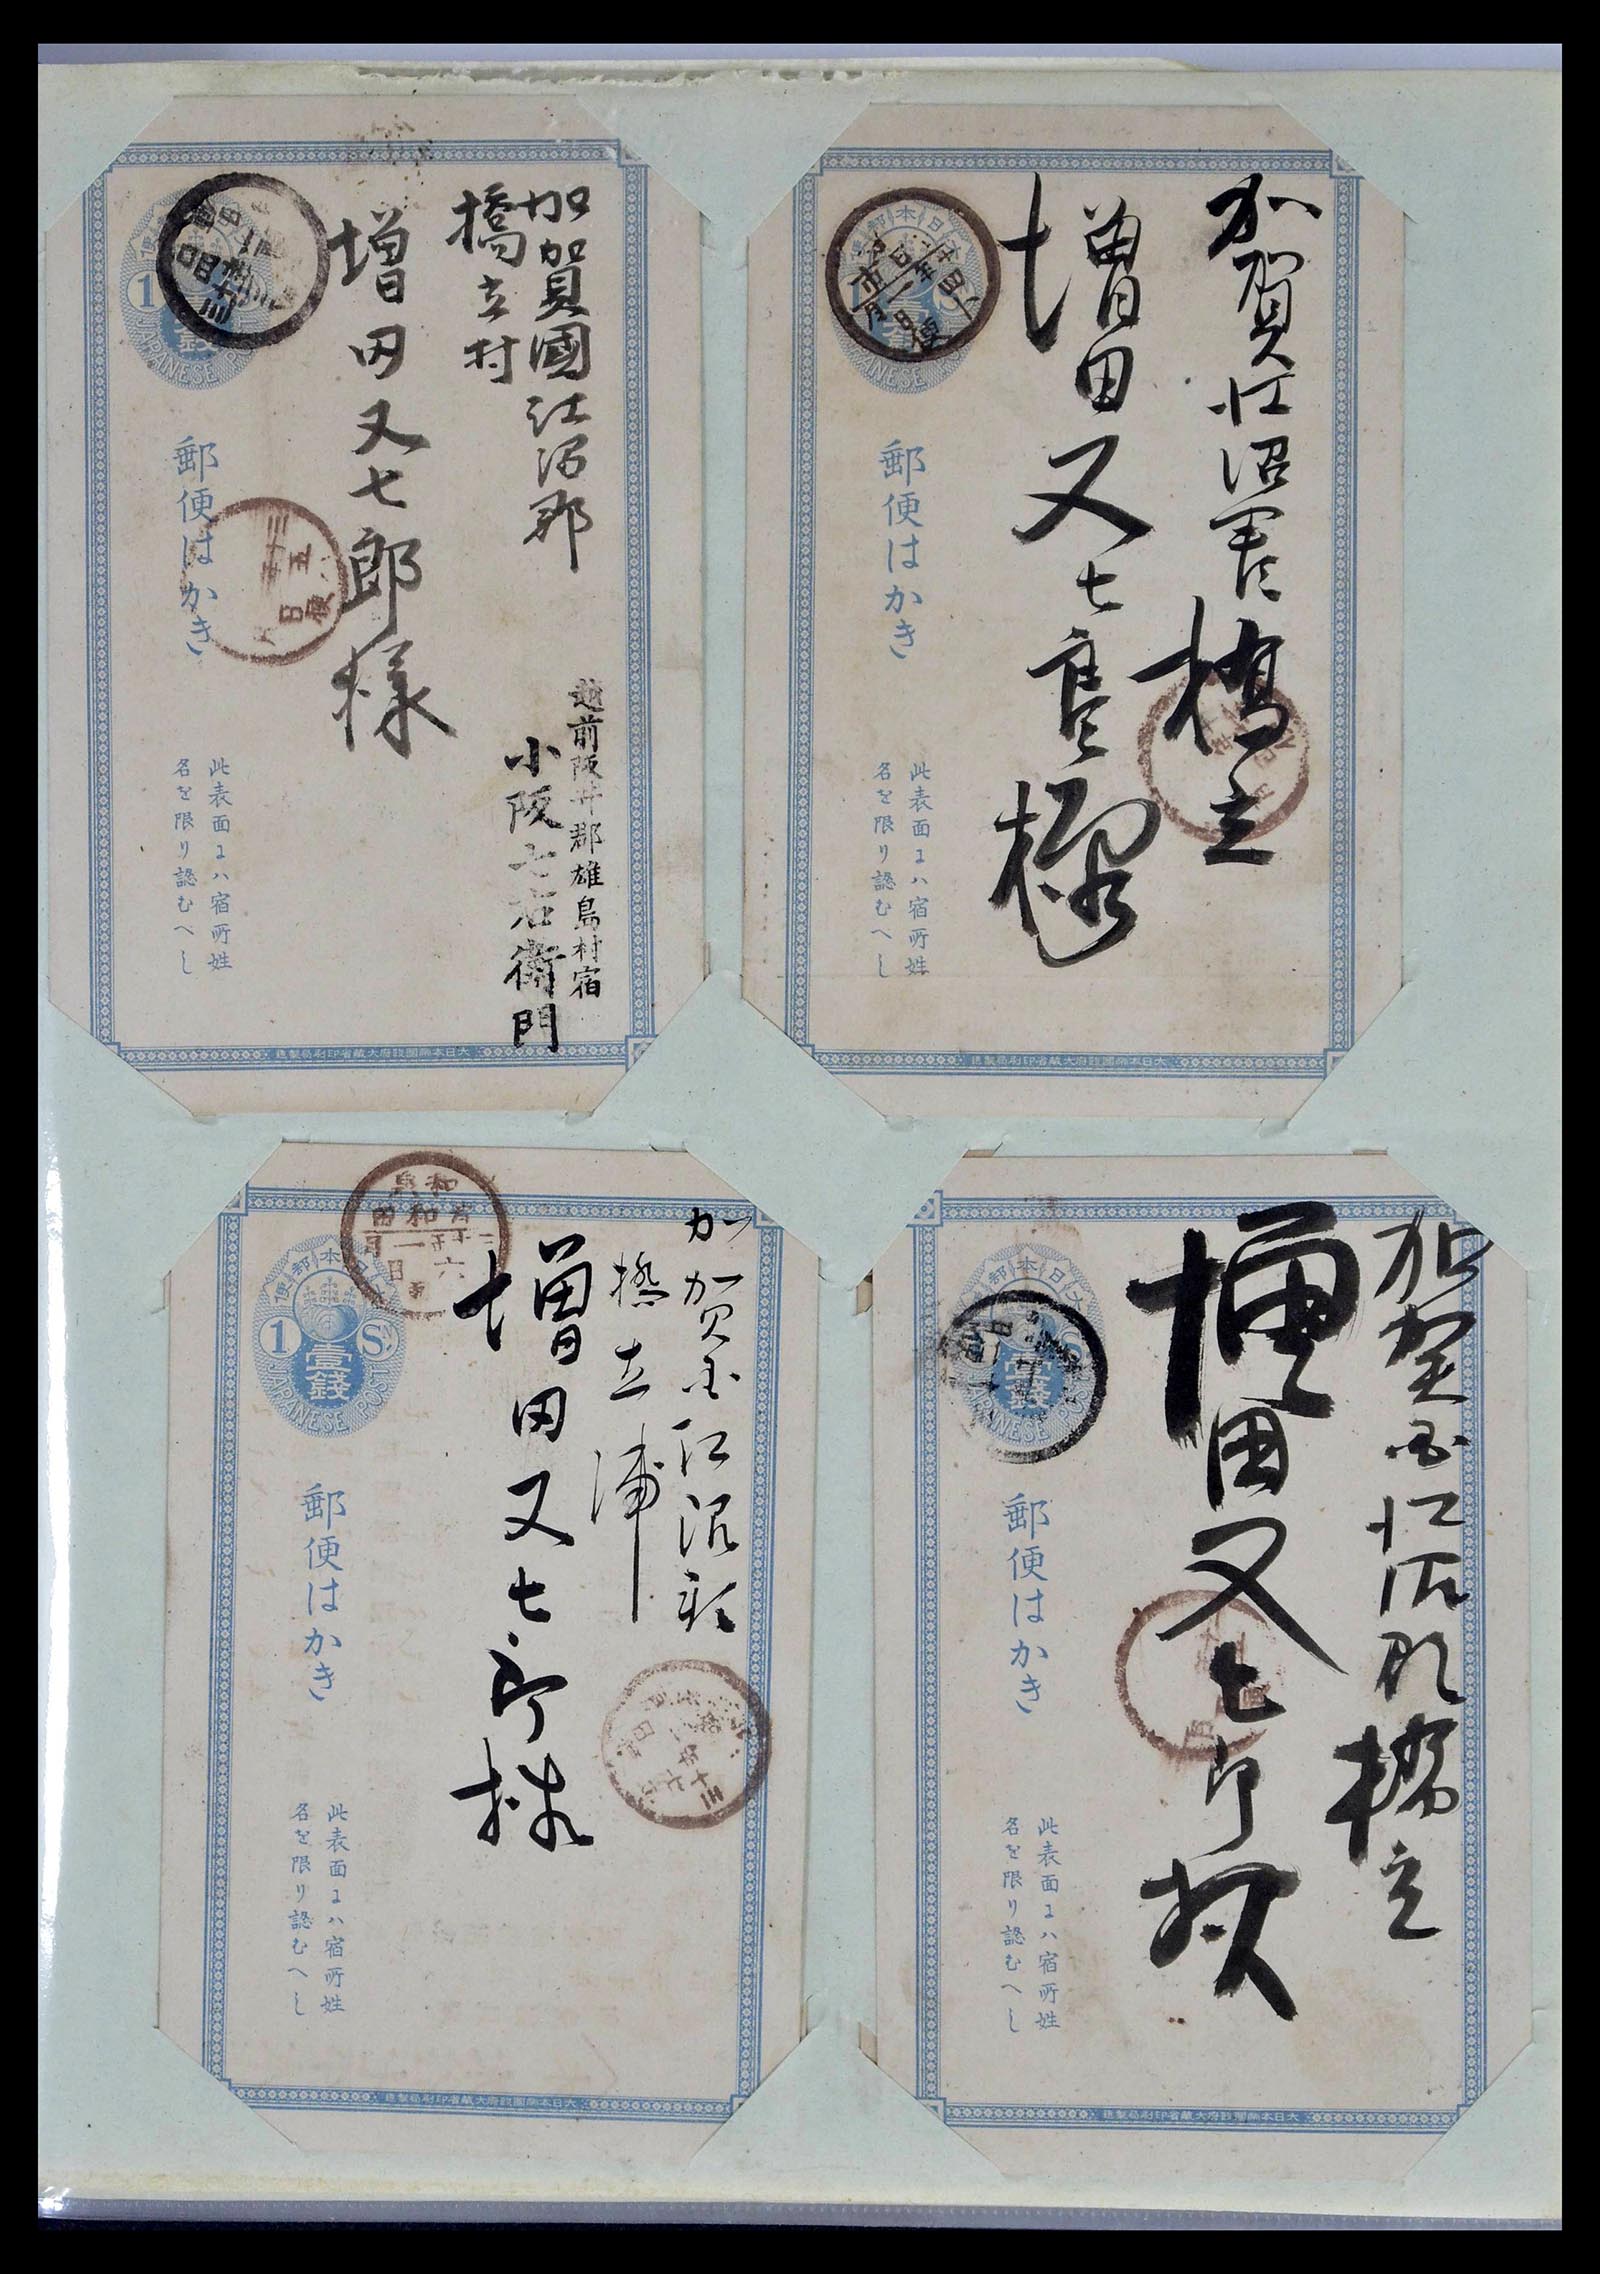 加賀國江沼郡
橋立村
増田又七郎様
越前阪井郡雄島村宿
小阪七右衛門
1
JAPANESE
郵便はかき
此表面にハ宿所姓
名を限り認むへし
大日本帝國政府大藏省印刷局製造
加賀江沼郡
橋立
増田又七郎様
郵便はかき
此表面にハ宿所姓
名を限り認むへし
大日本帝國政府大藏省印刷局製造
加賀国江沼郡
橋立浦
増田又七郎様
大日本郵便
1 Sn
壹錢
JAPANESE POST
郵便はかき
此表面にハ宿所姓
名を限り認むへし
大日本帝國政府大藏省印刷局製造
加賀国江沼郡橋立
増田又七郎様
大日本郵便
壹錢
JAPANESE POST
郵便はかき
此表面にハ宿所姓
名を限り認むへし
大日本帝國政府大藏省印刷局製造